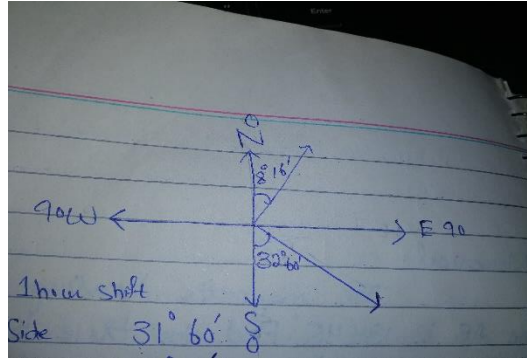 N 0
8° 16'
90 W
E 90
32° 60'
1 hour shift
S 0
Side 31° 60'